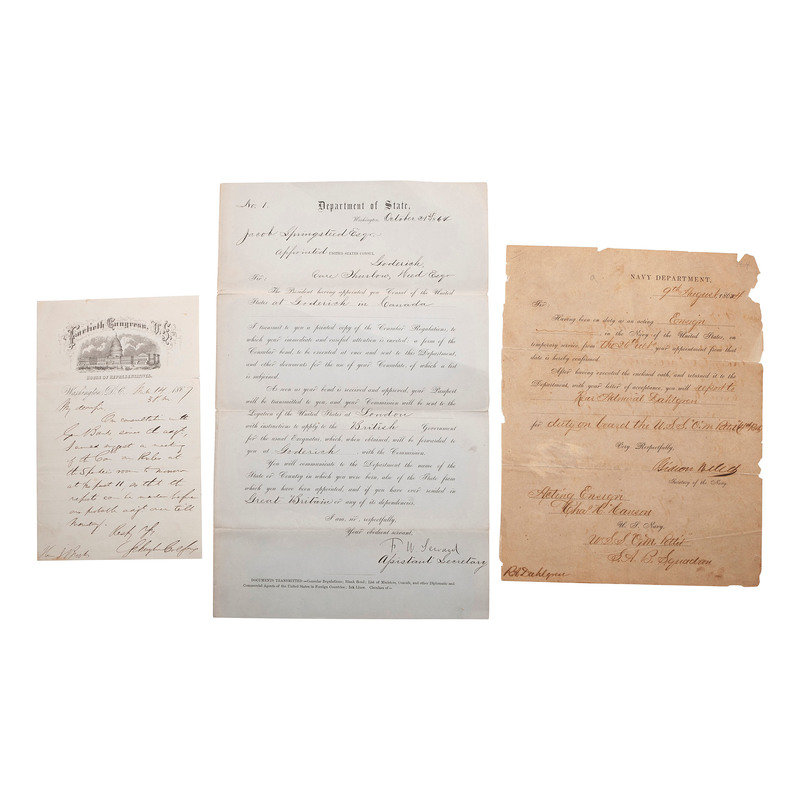 Fortieth Congress, U.S.
HOUSE OF REPRESENTATIVES.
Washington, D.C. 14 1867
My
Banks
a meeting
of the Com on Rules at
the Speaker room
at past 10 so that the
report can be made before
we probably adj over till
Monday.
No. 1
Department of State,
Washington, October 31st 1864
Jacob Springsteed Esqr.
Appointed UNITED STATES CONSUL
Goderich.
Care Thurlow Weed Esqr
Sir:
The President having appointed you Consul of the United
States at Goderich in Canada
I transmit to you a printed copy of the Consular Regulations, to
which your immediate and careful attention is excited; a form of the
Consular bond, to be executed at once and sent to this Department,
and other documents for the use of your Consulate, of which a list
is subjoined.
As soon as your bond is received and approved, your Passport
will be transmitted to you, and your Commission will be sent to the
Legation of the United States at London
with instruction to apply to the British Government
for the usual Exequatur, which when obtained will be forwarded to
you at Goderich, with the Commission.
You will communicate to the Department the name of the
State or Country in which you were born, also of the State from
which you have been appointed, and if you have ever resided in
Great Britain or any of its dependencies.
I am, sir, respectfully,
Your obedient servant,
F W Seward
Assistant Secretary
DOCUMENTS TRANSMITTED.—Consular Regulations; Blank Bond; List of Ministers, Consuls, and other Diplomatic and
Commercial Agents of the United States in Foreign Countries; Ink Lines. Circulars of—
NAVY DEPARTMENT,
9th August 1864
Sir:
Having been on duty as an acting Ensign
in the Navy of the United States, on
temporary service from the 26th your appointment from that
date is hereby confirmed.
After having executed the enclosed oath, and returned it to the
Department, with your letter of acceptance, you will report to
Rear Admiral Dahlgren
for duty on board the U.S.S.
Very Respectfully,
Gideon Welles
Secretary of the Navy.
Acting Ensign
Chas H. Hanson
U. S. Navy.
U.S.S.
S.A.B. Squadron